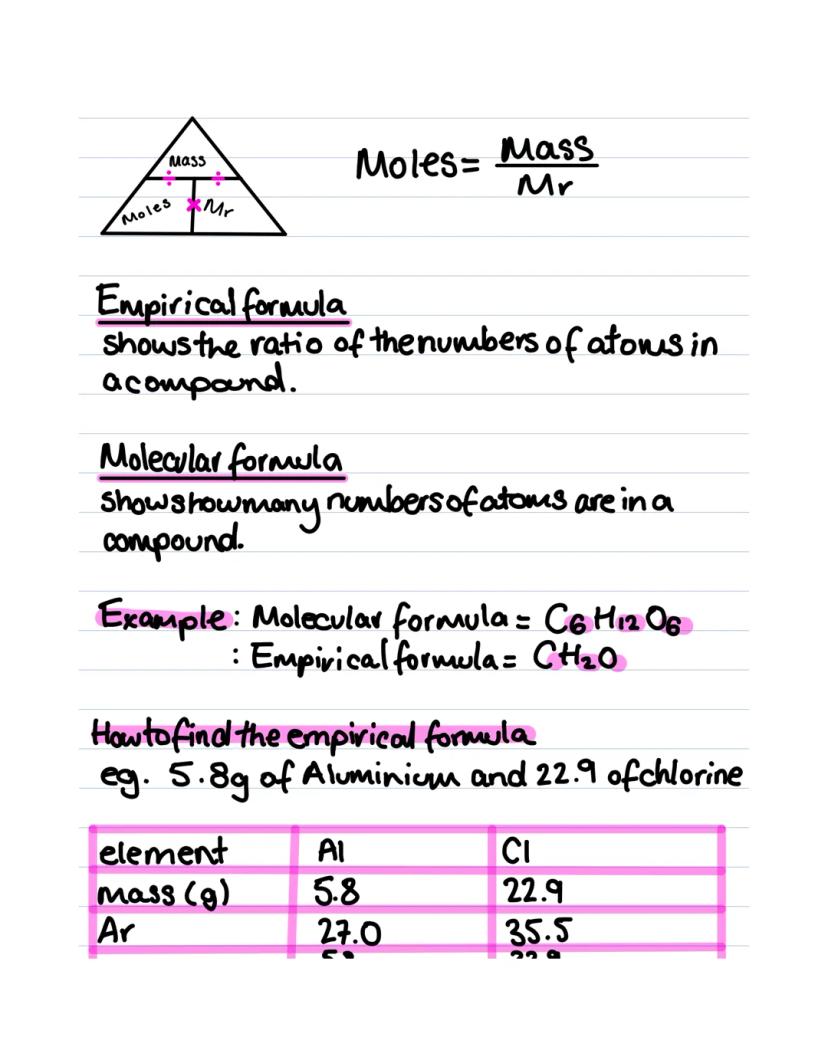 Mass
÷ ÷
Moles × Mr
Moles = Mass
Mr
Empirical formula
shows the ratio of the numbers of atoms in
a compound.
Molecular formula
shows how many numbers of atoms are in a
compound.
Example : Molecular formula = C₆H₁₂O₆
: Empirical formula = CH₂O
How to find the empirical formula
eg. 5.8g of Aluminium and 22.9 of chlorine
element Al Cl
mass (g) 5.8 22.9
Ar 27.0 35.5